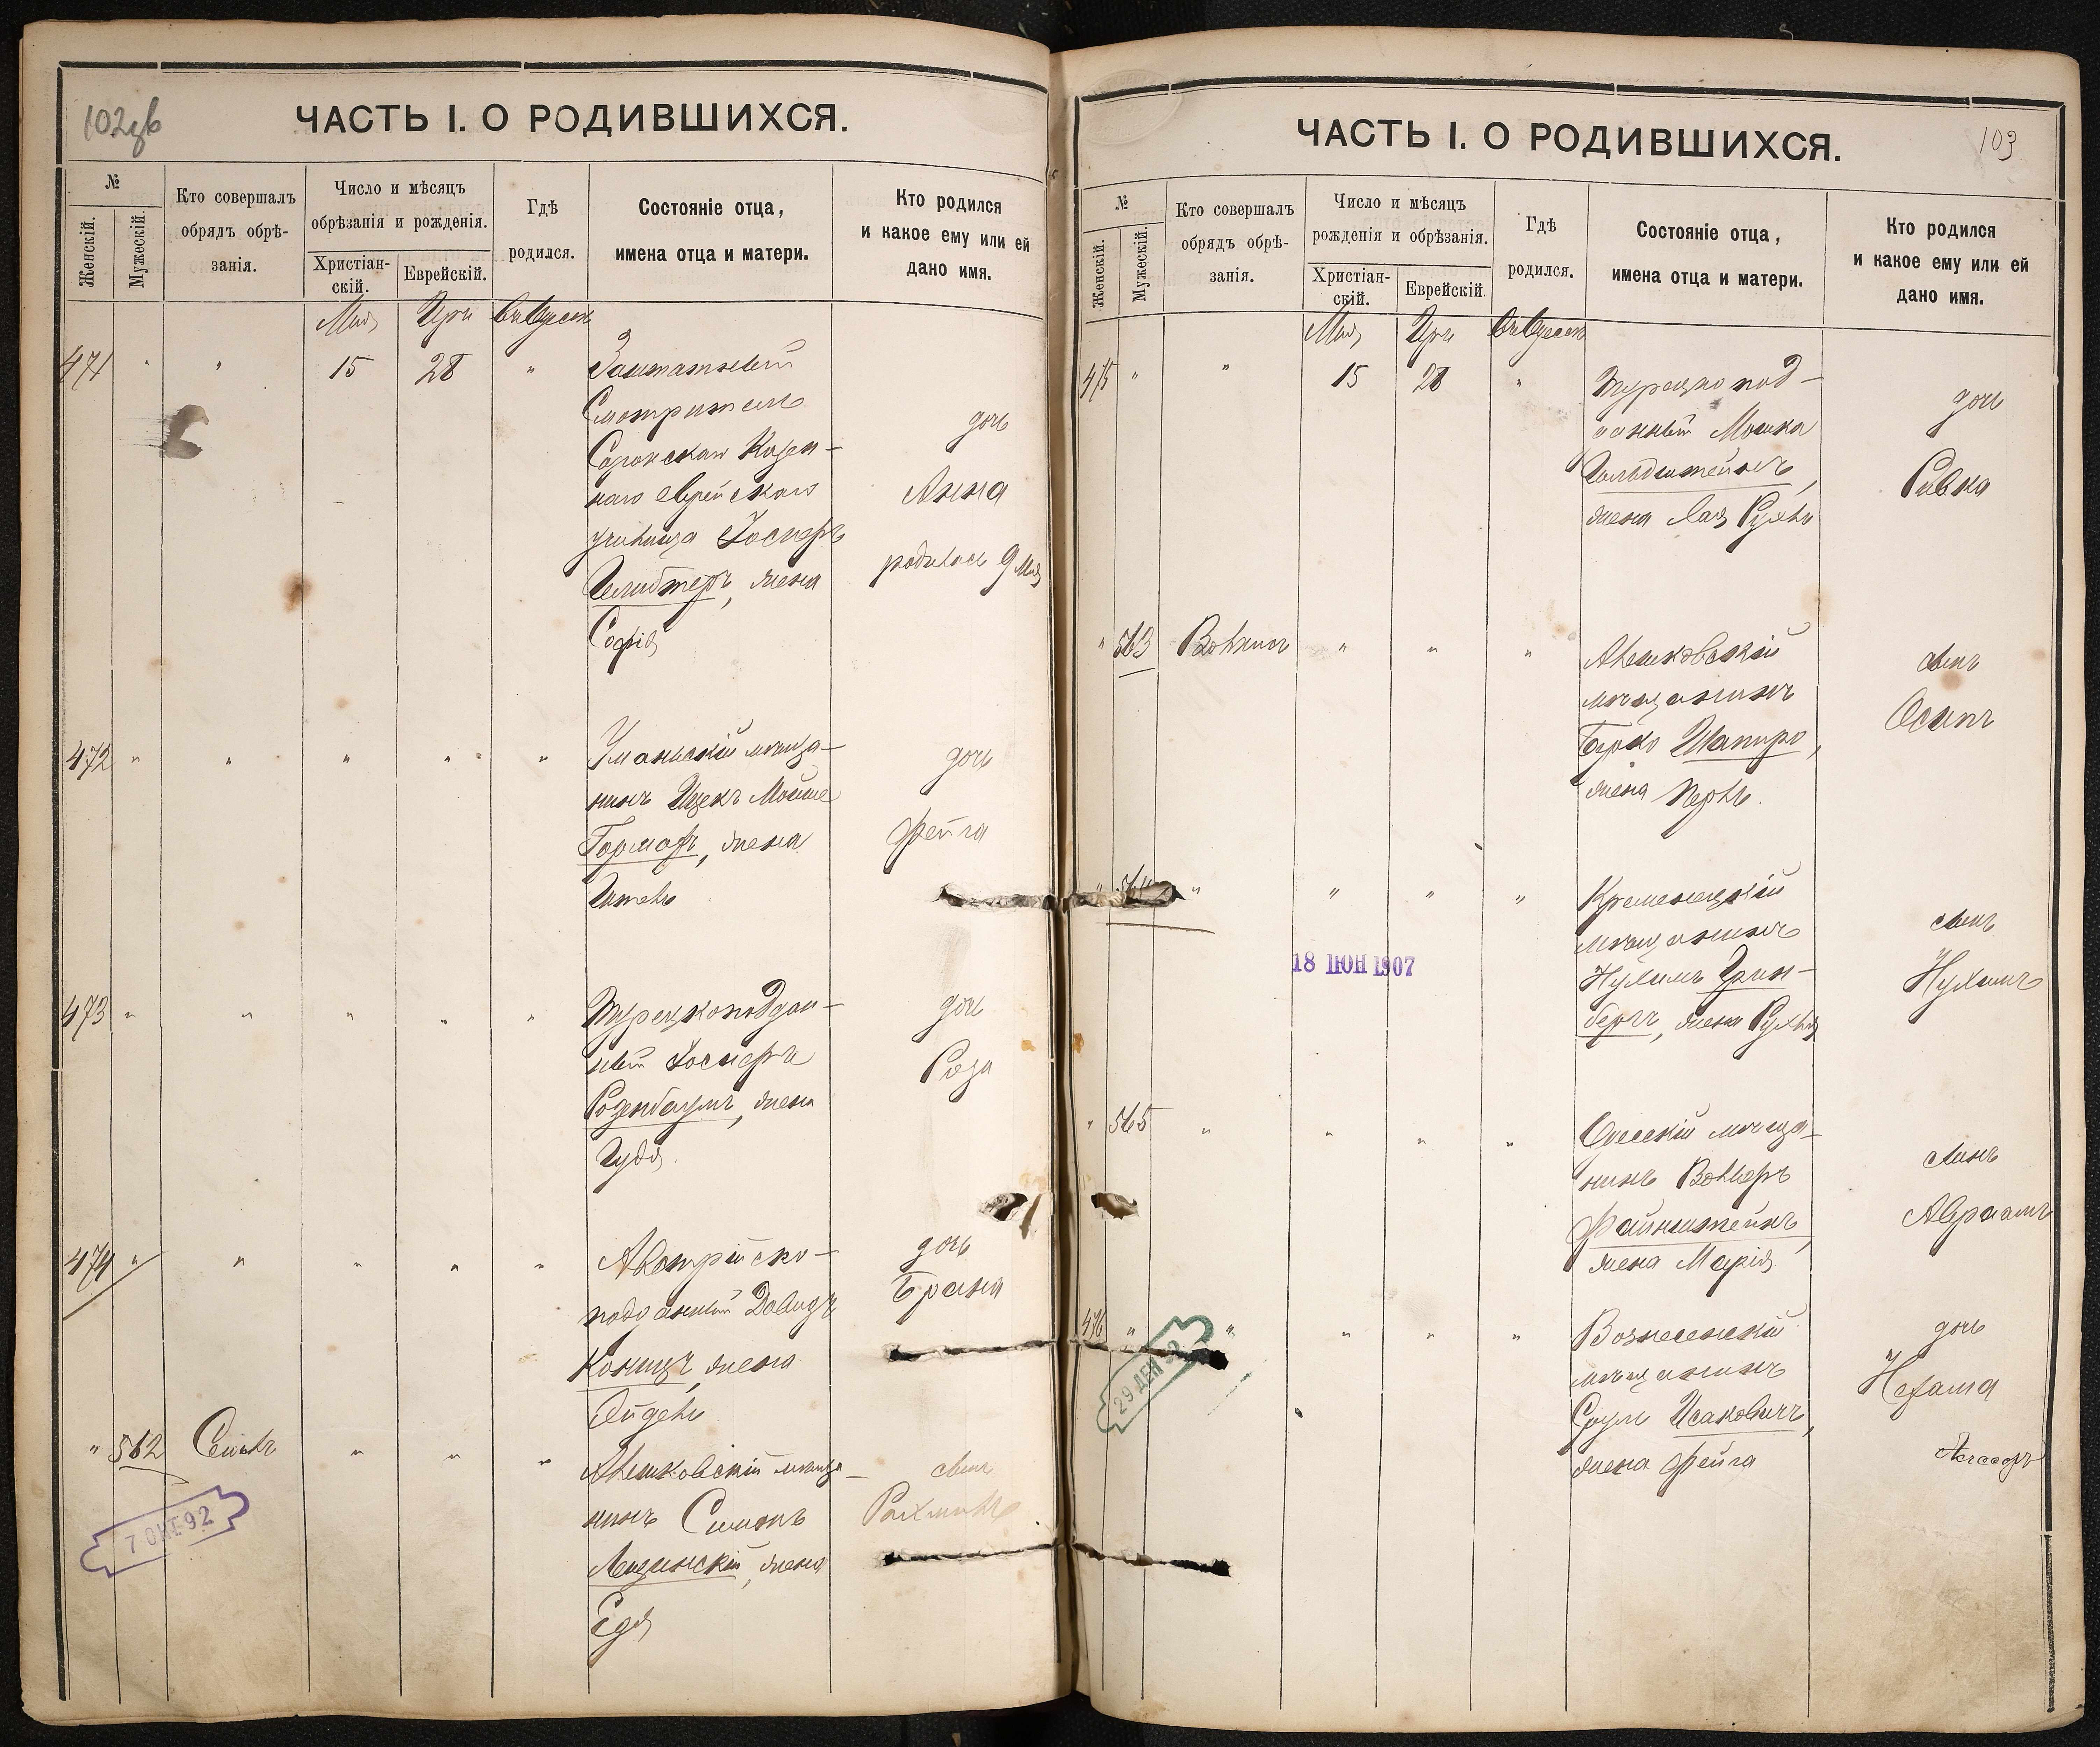 102 об
ЧАСТЬ I. О РОДИВШИХСЯ.
№
Женскій.
Мужескій.
Кто совершалъ
обрядъ обрѣ-
занія.
Число и мѣсяцъ
обрѣзанія и рожденія.
Христіан-
скій.
Еврейскій.
Гдѣ
родился.
Состояніе отца,
имена отца и матери.
Кто родился
и какое ему или ей
дано имя.
Мая
Іяра
въ Одессѣ
471 " " 15 28 " Заштатный
Смотритель
Сорокскаго Казен-
наго еврейскаго
училища Іосифъ
жена
Софія
дочь
Анна
родилась 9 Мая
472 " " " " " Уманьскій мѣща-
нинъ Ицекъ Мойше
жена
дочь
Фейга
473 " " " " " Турецкоподдан-
ный Іосифъ
Розенбаумъ, жена
дочь
Роза
474 " " " " " Австрійско-
подданный Давидъ
жена
Ейдель
дочь
Брана
" 562 " " " Алешковскій мѣща-
нинъ Симонъ
жена
сынъ
7 ОКТ 92
103
ЧАСТЬ I. О РОДИВШИХСЯ.
№
Женскій.
Мужескій.
Кто совершалъ
обрядъ обрѣ-
занія.
Число и мѣсяцъ
рожденія и обрѣзанія.
Христіан-
скій.
Еврейскій.
Гдѣ
родился.
Состояніе отца,
имена отца и матери.
Кто родился
и какое ему или ей
дано имя.
Мая
Іяра
въ Одессѣ
475 " " 15 28 " Турецкопод-
данный Мошка
Гольдштейнъ,
жена Рухля
дочь
Ривка
" 563 " " " Алешковскій
мѣщанинъ
Берко Шапиро,
жена Перль.
сынъ
Осипъ
" 564 " " " " Кременецкій
мѣщанинъ
Нухимъ Грин-
бергъ, жена Рухля
сынъ
Нухимъ
18 ІЮН 1907
" 565 " " " " Одесскій мѣща-
нинъ Вольфъ
Файнштейнъ,
жена Марія
сынъ
Авраамъ
476 " " " " " Вознесенскій
мѣщанинъ
Сруль Исаковичъ,
жена Фейга
дочь
Нехама
29 ДЕК 92